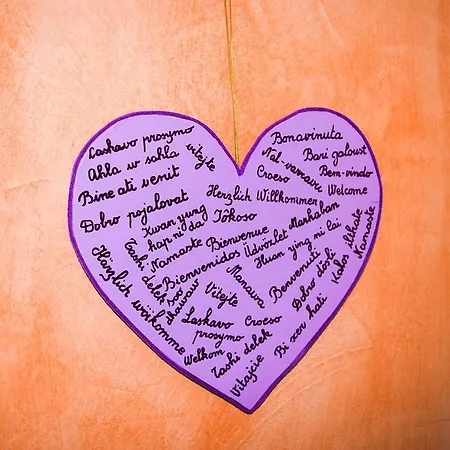 Laskavo prosymo
Ahla w sahla
vitejte
Bine ati venit
Dobro pojalovat
Kwan yung
hap ni da
Tashi delek
Namaste
Soo dhawaw
Härzlich wöikomme
Bonavinuta
Bari galoust
Nal-vravavu
Bem-vindo
Croeso
Welcome
Herzlich Willkommen
Yôkoso
Marhaban
Bienvenue
Üdvözlet
Bienvenidos
Huan ying ni lai
Namaste
Benvenuti
Dobro došli
Manawa
Vitejte
Laskavo
prosymo
Croeso
Welkom
Tashi delek
Vitajcie
Bi xer hati